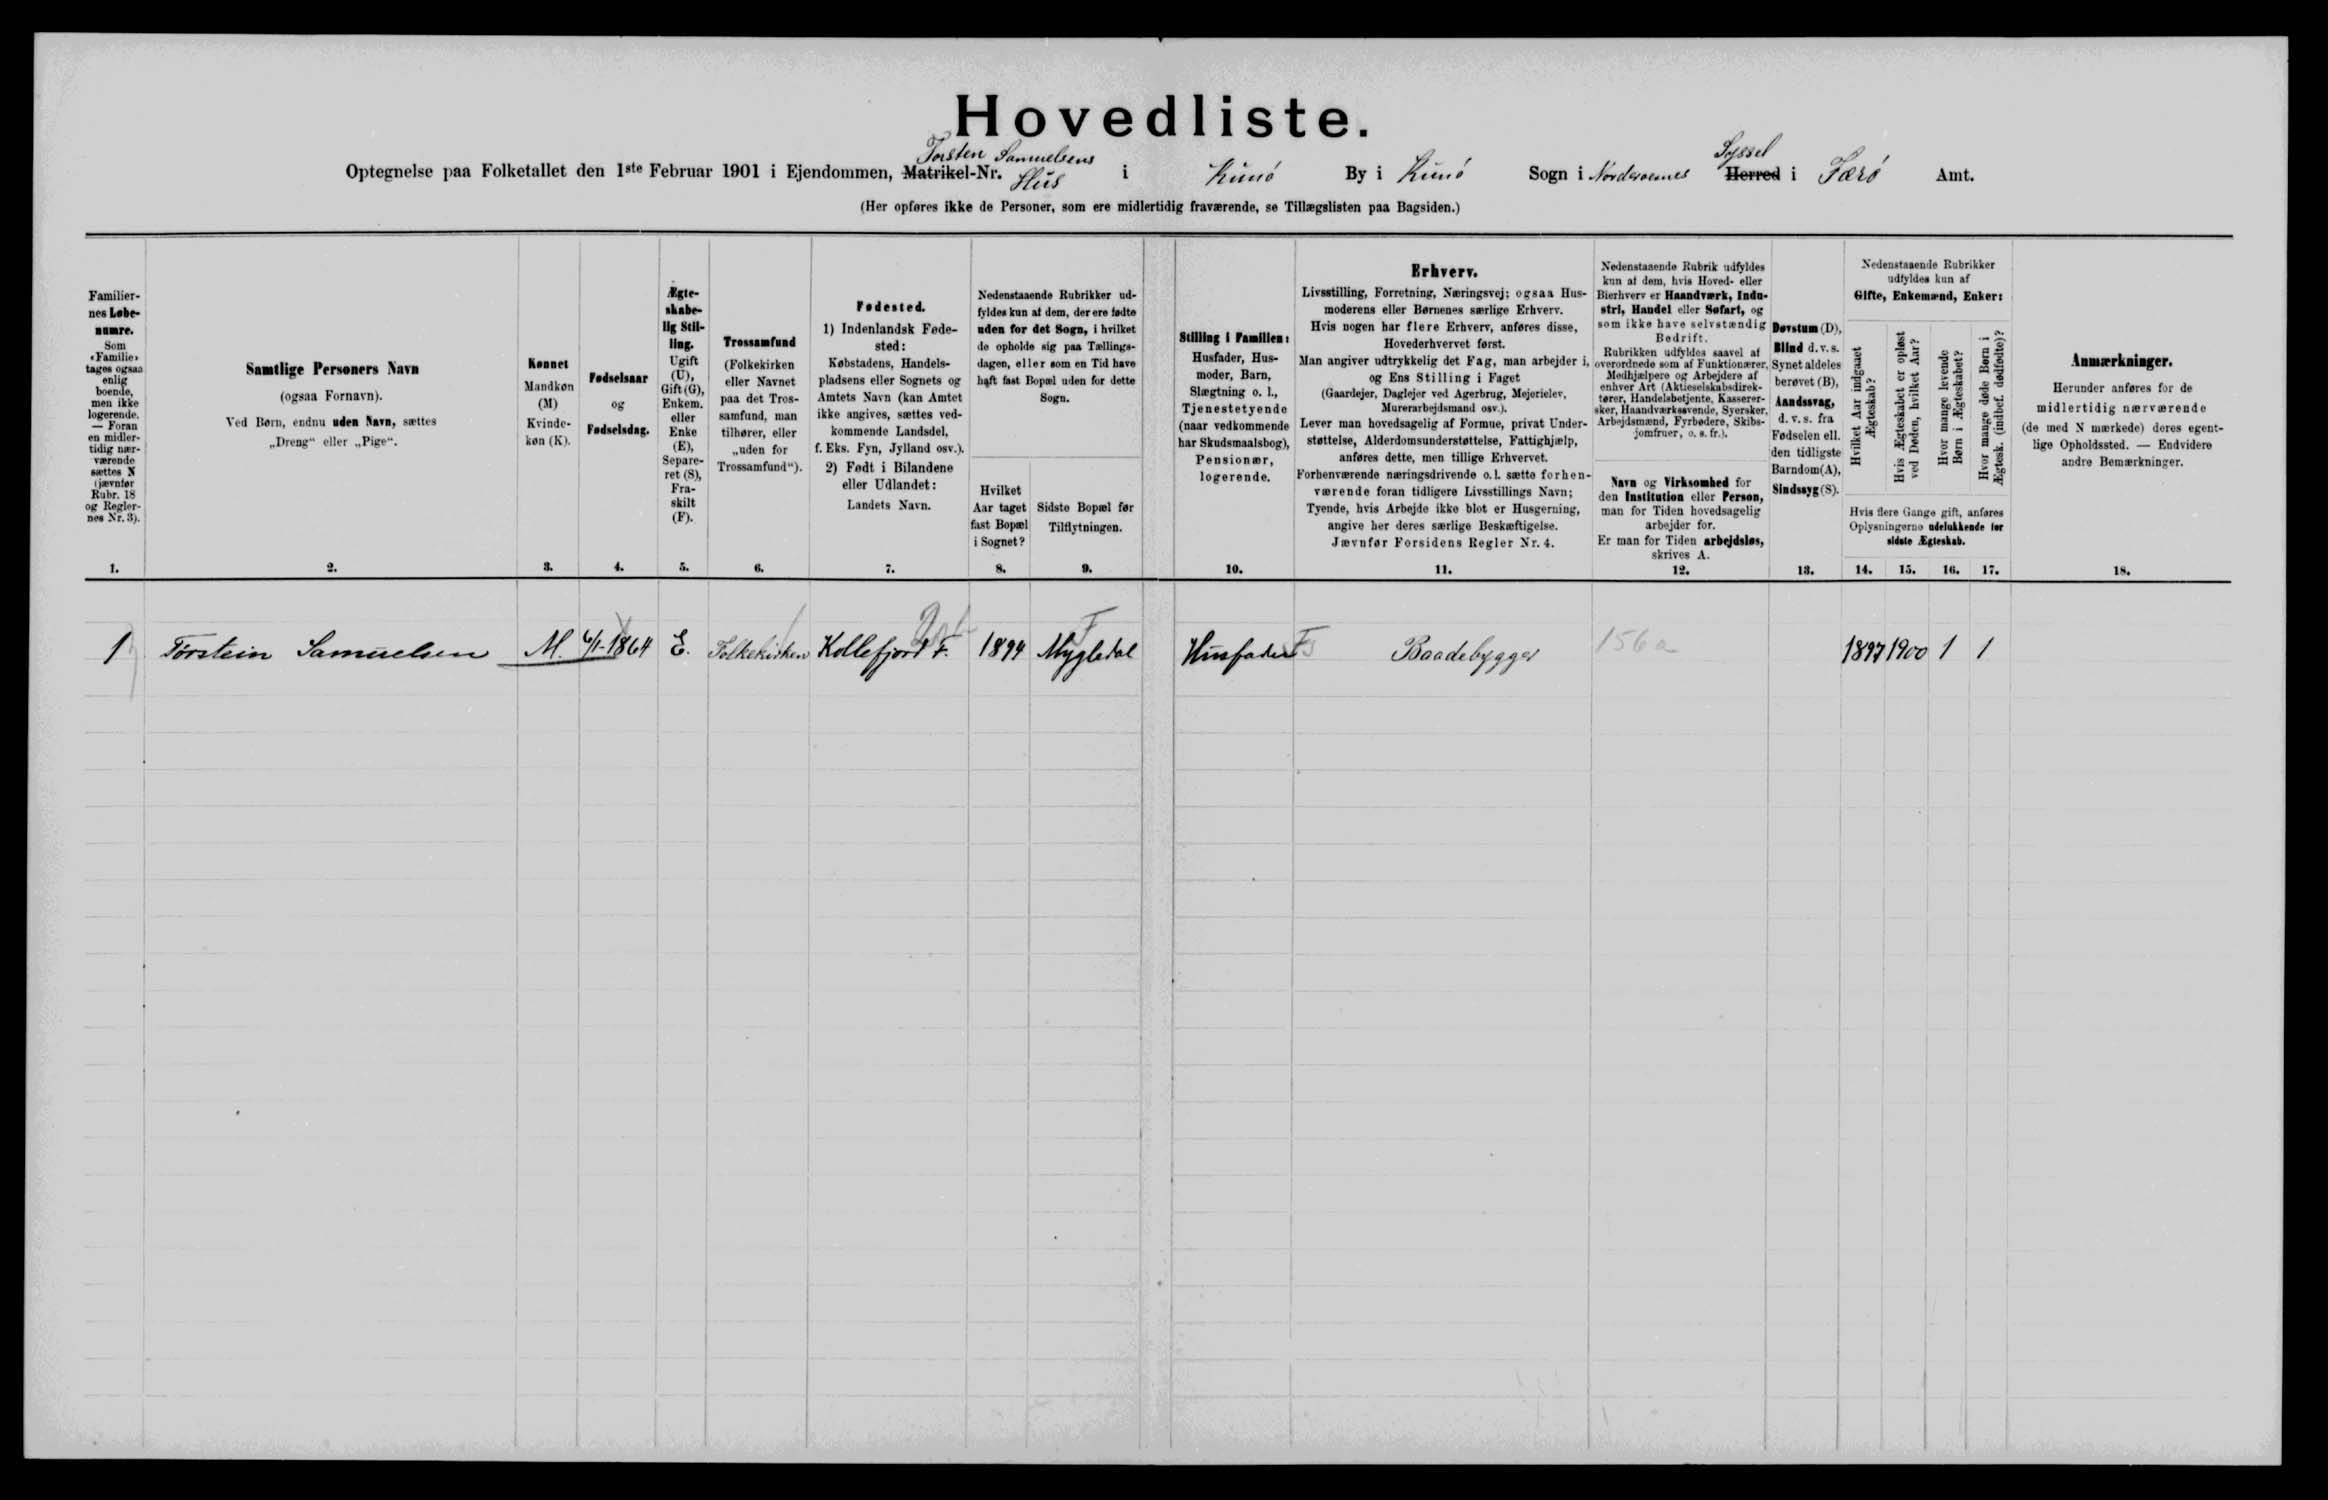 Hovedliste.
Torsten Samuelsens
Syssel
Optegnelse paa Folketallet den 1ste Februar 1901 i Ejendommen, Matrikel-Nr. Hus i Kunø By i Kunø Sogn i Norderoernes Herred i Færø Amt.
(Her opføres ikke de Personer, som ere midlertidig fraværende, se Tillægslisten paa Bagsiden.)
Familier-
nes Løbe-
numre.
Som
«Familie»
tages ogsaa
enlig
boende,
men ikke
logerende.
— Foran
en midler-
tidig nær-
værende
sættes N
(jævnfør
Rubr. 18
og Regler-
nes Nr. 3).
1.
Samtlige Personers Navn
(ogsaa Fornavn).
Ved Børn, endnu uden Navn, sættes
„Dreng“ eller „Pige“.
2.
Kønnet
Mandkøn
(M)
Kvinde-
køn (K).
3.
Fødselsaar
og
Fødselsdag.
4.
Ægte-
skabe-
lig Stil-
ling.
Ugift
(U),
Gift (G),
Enkem.
eller
Enke
(E),
Separe-
ret (S),
Fra-
skilt
(F).
5.
Trossamfund
(Folkekirken
eller Navnet
paa det Tros-
samfund, man
tilhører, eller
„uden for
Trossamfund“).
6.
Fødested.
1) Indenlandsk Føde-
sted:
Købstadens, Handels-
pladsens eller Sognets og
Amtets Navn (kan Amtet
ikke angives, sættes ved-
kommende Landsdel,
f. Eks. Fyn, Jylland osv.).
2) Født i Bilandene
eller Udlandet:
Landets Navn.
7.
Nedenstaaende Rubrikker ud-
fyldes kun af dem, der ere fødte
uden for det Sogn, i hvilket
de opholde sig paa Tællings-
dagen, eller som en Tid have
haft fast Bopæl uden for dette
Sogn.
Hvilket
Aar taget
fast Bopæl
i Sognet?
8.
Sidste Bopæl før
Tilflytningen.
9.
Stilling i Familien:
Husfader, Hus-
moder, Barn,
Slægtning o. l.,
Tjenestetyende
(naar vedkommende
har Skudsmaalsbog),
Pensionær,
logerende.
10.
Erhverv.
Livsstilling, Forretning, Næringsvej; ogsaa Hus-
moderens eller Børnenes særlige Erhverv.
Hvis nogen har flere Erhverv, anføres disse,
Hovederhvervet først.
Man angiver udtrykkelig det Fag, man arbejder i,
og Ens Stilling i Faget
(Gaardejer, Daglejer ved Agerbrug, Mejerielev,
Murerarbejdsmand osv.).
Lever man hovedsagelig af Formue, privat Under-
støttelse, Alderdomsunderstøttelse, Fattighjælp,
anføres dette, men tillige Erhvervet.
Forhenværende næringsdrivende o. l. sætte forhen-
værende foran tidligere Livsstillings Navn;
Tyende, hvis Arbejde ikke blot er Husgerning,
angive her deres særlige Beskæftigelse.
Jævnfør Forsidens Regler Nr. 4.
11.
Nedenstaaende Rubrik udfyldes
kun af dem, hvis Hoved- eller
Bierhverv er Haandværk, Indu-
stri, Handel eller Søfart, og
som ikke have selvstændig
Bedrift.
Rubrikken udfyldes saavel af
overordnede som af Funktionærer,
Medhjælpere og Arbejdere af
enhver Art (Aktieselskabsdirek-
tører, Handelsbetjente, Kasserer-
sker, Haandværkssvende, Syersker,
Arbejdsmænd, Fyrbødere, Skibs-
jomfruer, o. s. fr.).
Navn og Virksomhed for
den Institution eller Person,
man for Tiden hovedsagelig
arbejder for.
Er man for Tiden arbejdsløs,
skrives A.
12.
Døvstum (D),
Blind d. v. s.
Synet aldeles
berøvet (B),
Aandssvag,
d. v. s. fra
Fødselen ell.
den tidligste
Barndom (A),
Sindssyg (S).
13.
Nedenstaaende Rubrikker
udfyldes kun af
Gifte, Enkemænd, Enker:
Hvilket Aar indgaaet
Ægteskab?
Hvis Ægteskabet er opløst
ved Døden, hvilket Aar?
Hvor mange levende
Børn i Ægteskabet?
Hvor mange døde Børn i
Ægtesk. (indbef. dødfødte)?
Hvis flere Gange gift, anføres
Oplysningerne udelukkende for
sidste Ægteskab.
14. 15. 16. 17.
Anmærkninger.
Herunder anføres for de
midlertidig nærværende
(de med N mærkede) deres egent-
lige Opholdssted. — Endvidere
andre Bemærkninger.
18.
1 Torstein Samuelsen M. 6/1-1864 E. Folkekirken Kollefjord F. 1894 Mygledal Husfader Baadebygger 156a 1897 1900 1 1